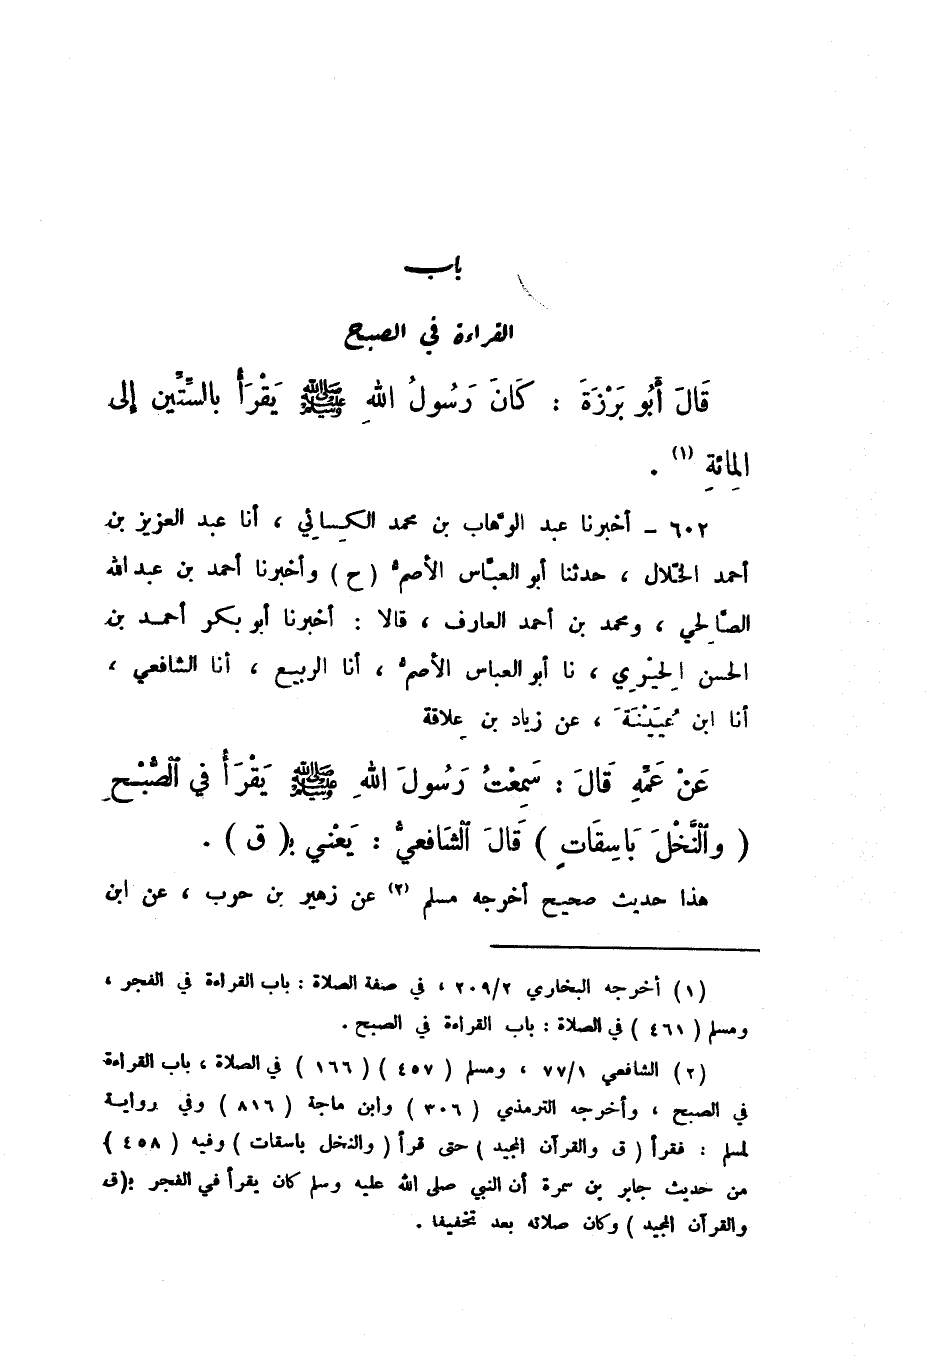 باب
القراءة في الصبح
قَالَ أَبُو بَرْزَةَ : كَانَ رَسُولُ اللهِ ﷺ يَقْرَأُ بالسِّتِّين إلى
المِائةِ (١) .
٦٠٢ – أخبرنا عبد الوهّاب بن محمد الكِسائي ، أنا عبد العزيز بن
أحمد الخلّال ، حدثنا أبو العبّاس الأصمُّ (ح) وأخبرنا أحمد بن عبد الله
الصّالِحي ، ومحمد بن أحمد العارف ، قالا : أخبرنا أبو بكر أحمد بن
الحسن الحِيْرِي ، نا أبو العباس الأصمُّ ، أنا الربيع ، أنا الشافعي ،
أنا ابن عُيَيْنَةَ ، عن زياد بن عِلاقة
عَنْ عَمِّهِ قَالَ : سَمِعْتُ رَسُولَ اللهِ ﷺ يَقْرَأُ في الصُّبْحِ
( والنَّخْلَ بَاسِقَاتٍ ) قَالَ الشَافعيُّ : يَعْني بـ( ق ) .
هذا حديث صحيح أخرجه مسلم (٢) عن زهير بن حرب ، عن ابن
(١) أخرجه البخاري ٢٠٩/٢ ، في صفة الصلاة : باب القراءة في الفجر ،
ومسلم ( ٤٦١ ) في الصلاة : باب القراءة في الصبح .
(٢) الشافعي ٧٧/١ ، ومسلم ( ٤٥٧ ) ( ١٦٦ ) في الصلاة ، باب القراءة
في الصبح ، وأخرجه الترمذي ( ٣٠٦ ) وابن ماجة ( ٨١٦ ) وفي رواية
لمسلم : فقرأ ( ق والقرآن المجيد ) حتى قرأ ( والنخل باسقات ) وفيه ( ٤٥٨ )
من حديث جابر بن سمرة أن النبي صلى الله عليه وسلم كان يقرأ في الفجر بـ(ق
والقرآن المجيد ) وكان صلاته بعد تخفيفا .